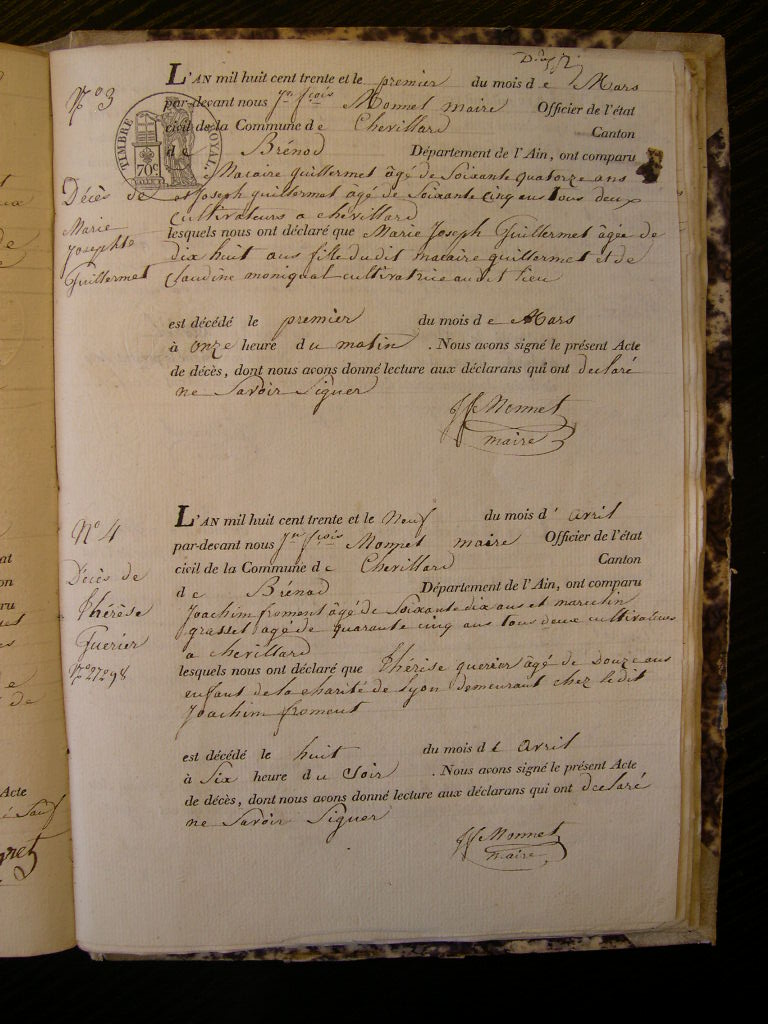 N° 3
TIMBRE ROYAL
70c
Décès de
Marie
Josephte
Guillermet
L'AN mil huit cent trente et le premier du mois de Mars
par-devant nous Jn fcois Monnet maire Officier de l'état
civil de la Commune de Chevillard Canton
de Brénod Département de l'Ain, ont comparu
Macaire guillermet âgé de Soixante quatorze ans
et Joseph guillermet agé de Soixante cinq ans tous deux
cultivateurs a chevillard
lesquels nous ont déclaré que Marie Joseph Guillermet âgée de
dix huit ans fille du dit macaire guillermet et de
Claudine cultivatrice audit lieu
est décédé le premier du mois de Mars
à onze heure du matin . Nous avons signé le présent Acte
de décès, dont nous avons donné lecture aux déclarans qui ont declaré
ne Savoir Signer
Monnet
maire
N° 4
Décès de
thérèse
Guerier
N° 27098
L'AN mil huit cent trente et le Neuf du mois d' avril
par-devant nous Jn fcois Monnet maire Officier de l'état
civil de la Commune de Chevillard Canton
de Brénod Département de l'Ain, ont comparu
Joachim froment âgé de Soixante dix ans et marcelin
grasset agé de quarante cinq ans tous deux cultivateurs
a chevillard
lesquels nous ont déclaré que thérèse guerier âgé de Douze ans
enfant de la charité de Lyon demeurant chez ledit
Joachim froment
est décédé le huit du mois de avril
à Six heure du Soir . Nous avons signé le présent Acte
de décès, dont nous avons donné lecture aux déclarans qui ont declaré
ne Savoir Signer
Monnet
maire
Acte